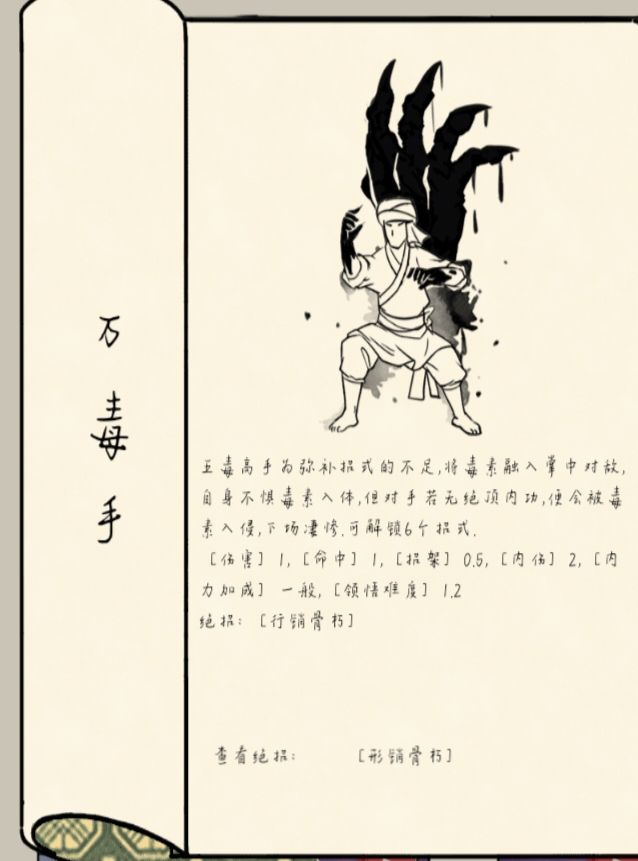 万毒手
五毒高手为弥补招式的不足,将毒素融入掌中对敌,
自身不惧毒素入体,但对手若无绝顶内功,便会被毒
素入侵,下场凄惨.可解锁6个招式.
[伤害] 1, [命中] 1, [招架] 0.5, [内伤] 2, [内
力加成] 一般, [领悟难度] 1.2
绝招: [行销骨朽]
查看绝招: [形销骨朽]